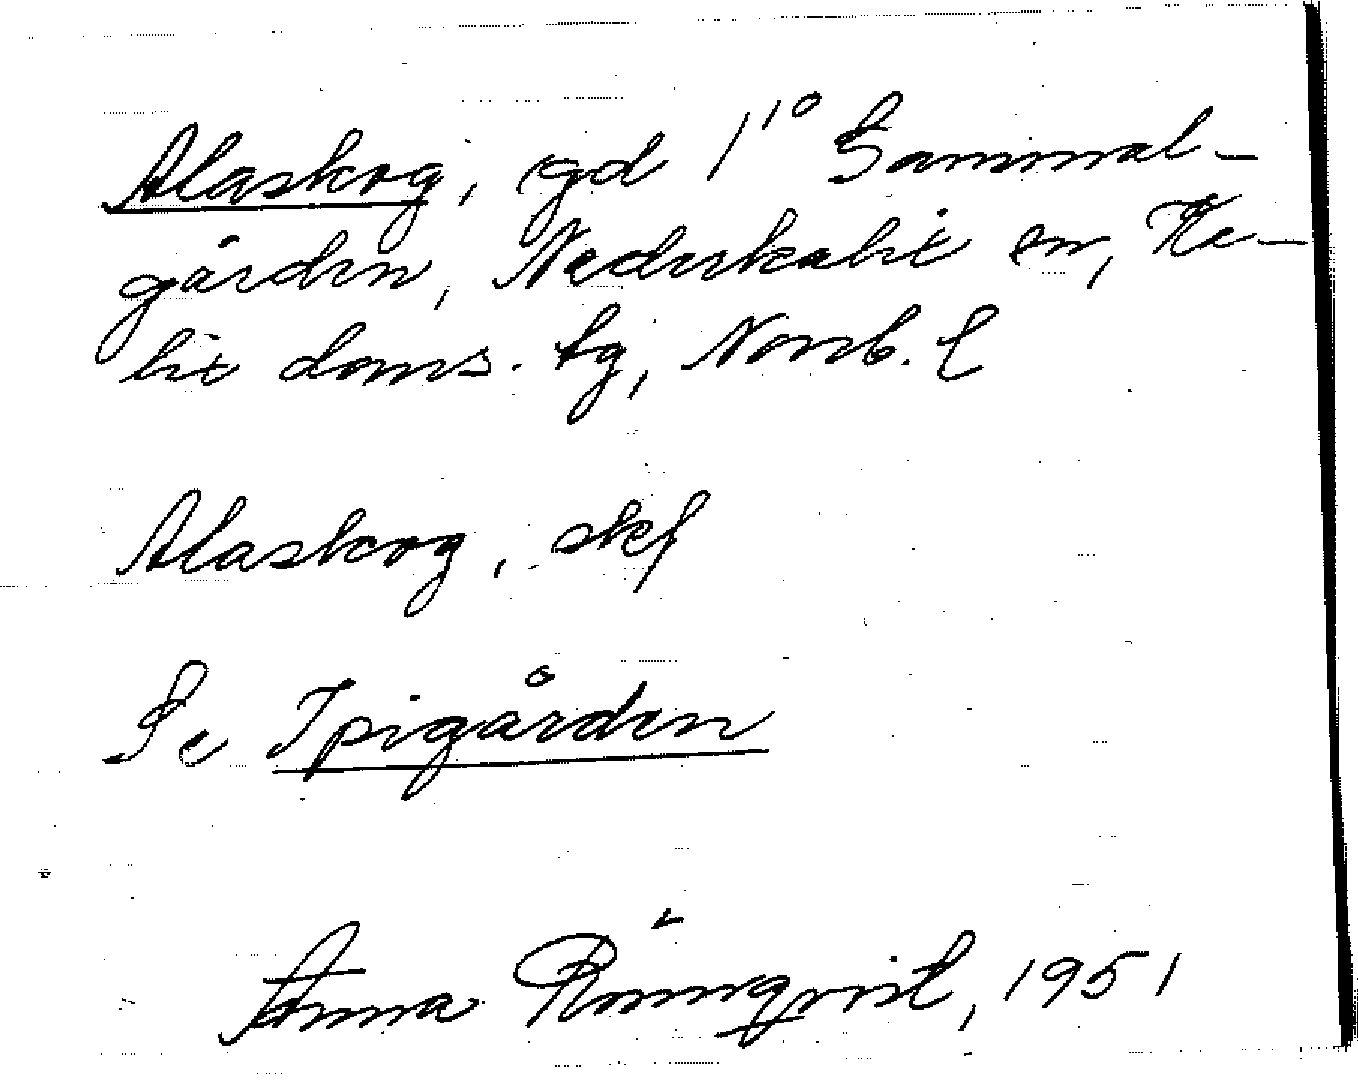 Alaskog, gd 1¹⁰ Gammal-
gården, Nederkalix sn, Ka-
lix doms. tg, Norrb. l
Alaskog, skf
Se Ipigården
Anna Rönnqvist, 1951